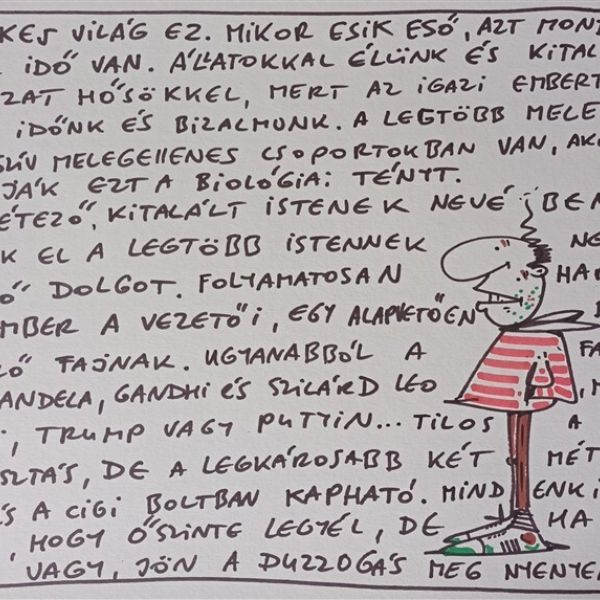 KES VILÁG EZ. MIKOR ESIK ESŐ, AZT MONT
IDŐ VAN. ÁLLATOKKAL ÉLÜNK ÉS KITAL
ZAT HŐSÖKKEL, MERT AZ IGAZI EMBERT
IDŐNK ÉS BIZALMUNK. A LEGTÖBB MELE
SZÍV MELEGELLENES CSOPORTOKBAN VAN, AKI
JÁK EZT A BIOLÓGIAI TÉNYT.
ÉTEZŐ, KITALÁLT ISTENEK NEVÉBEN
K EL A LEGTÖBB ISTENNEK NE
Ó" DOLGOT. FOLYAMATOSAN HA
MBER A VEZETŐI, EGY ALAPVETŐEN
LÓ FAJNAK. UGYANABBÓL A FA
ANDELA, GANDHI ÉS SZILÁRD LEO
, TRUMP VAGY PUTYIN... TILOS A
SZTÁS, DE A LEGKÁROSABB KÉT MÉT
S A CIGI BOLTBAN KAPHATÓ. MINDENKI
, HOGY ŐSZINTE LEGYÉL, DE HA
VAGY, JÖN A DUZZOGÁS MEG NYENYE